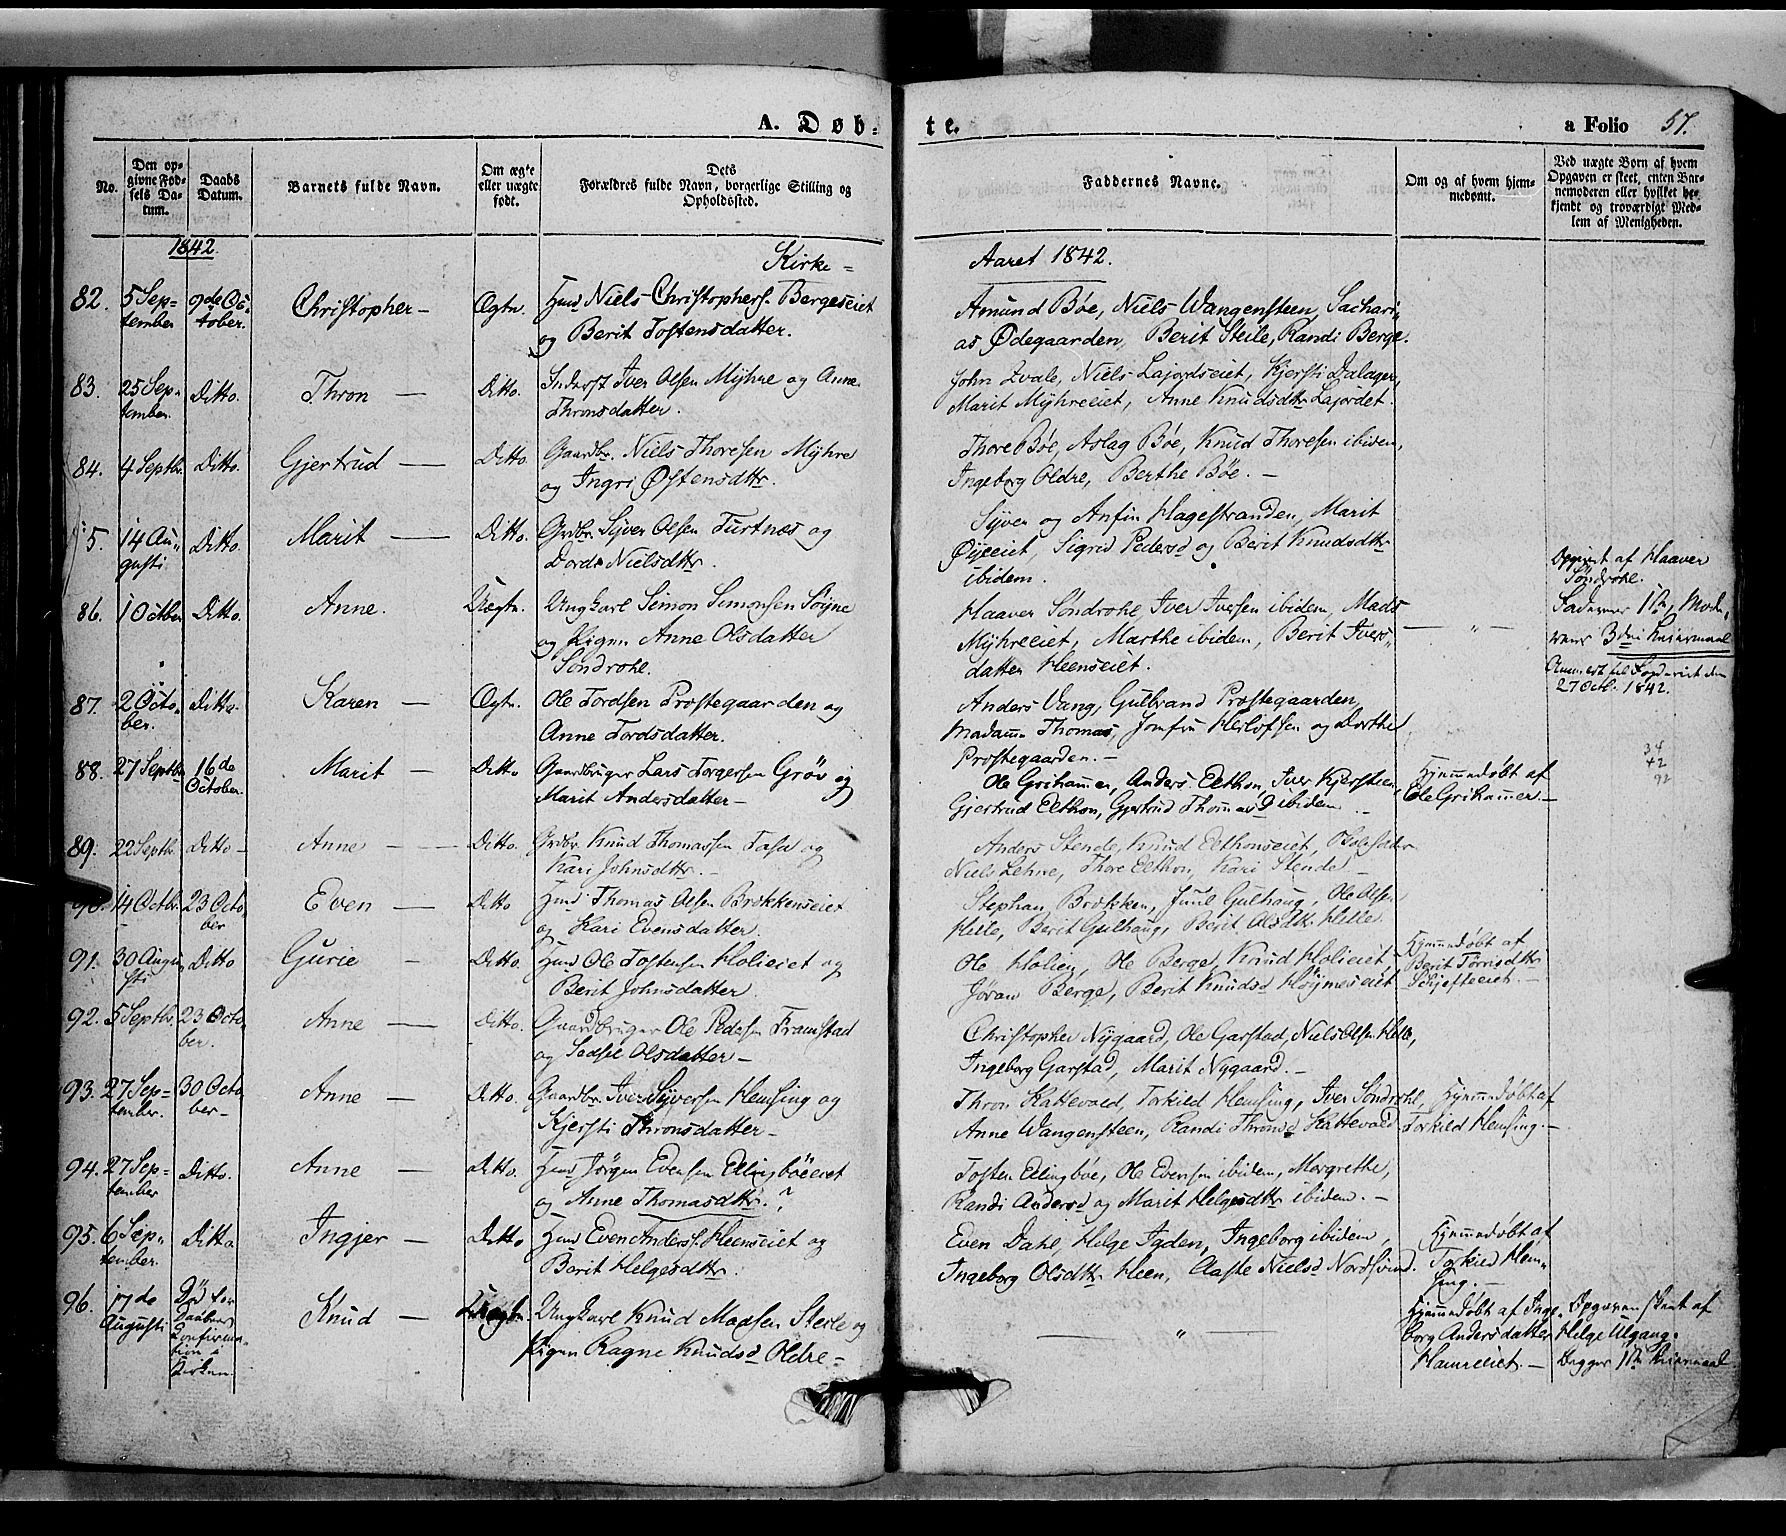 A. Døb-
te.
a Folio 57.
No.
Den op-
givne Fød-
sels Da-
tum.
Daabs
Datum.
Barnets fulde Navn.
Om ægte
eller uægte
født.
Dets
Forældres fulde Navn, borgerlige Stilling og
Opholdssted.
Faddernes Navne.
Om og af hvem hjem-
medømt.
Ved uægte Børn af hvem
Opgaven er skeet, enten Bar-
nemoderen eller hvilket be-
kjendt og troværdigt Med-
lem af Menigheden.
1842.
Kirke =
Aaret 1842.
82. 5 Sep-
tember
9de Oc-
tober.
Christopher —
Ægte.
Huusd Niels Christophers. Bergeseiet
og Berit Tostensdatter.
Amund Bøe, Niels Wangensteen, Sachari-
as Ødegaarden, Berit Steile, Randi Berge.
83. 25 Sep-
tember.
Ditto.
Thron —
Ditto.
Inderst Iver Olsen Mÿhre og Anne
Thronsdatter.
John Qvale, Niels Lajordseiet, Kjersti Dalager,
Marit Mÿhreeiet, Anne Knudsdtr Lajordet.
84. 4 Septbr.
Ditto.
Gjertrud —
Ditto.
Gaardbr. Niels Thoresen Mÿhre
og Ingri Østensdttr.
Thore Bøe, Aslag Bøe, Knud Thoresen ibidem,
Ingeborg Oldre, Berthe Bøe. —
5. 14 Au-
gusti.
Ditto.
Marit —
Ditto.
Grdbr. Sÿver Olsen Turtnæs og
Dorde Nielsdttr.
Sÿver og Anfin Hagestranden, Marit
Øÿeeiet, Sigrid Pedersd og Berit Knudsdttr
ibidem.
86. 1 Octber
Ditto.
Anne.
Uægte.
Ungkarl Simon Simonsen Søÿne
og Pigen Anne Olsdatter
Søndrohe.
Haaver Søndrohe, Iver Iversen ibidem, Mads
Mÿhreeiet, Marthe ibidem, Berit Ivers-
datter Heenseiet.
— " —
Opgivet af Haaver
Søndrohe.
Faderens 1ste, Mode-
rens 3die Leiermaal
Anmeldt til Fogderiet den
27 Octb. 1842.
87. 2 Octo-
ber.
Ditto.
Karen —
Ægte.
Ole Tordsen Præstegaarden og
Anne Tordsdatter.
Anders Vang, Gulbrand Præstegaarden,
Madame Thomas, Jomfru Herlofsen og Dorthe
Præstegaarden. —
34
42
92
88. 27 Septbr
16de
October.
Marit —
Ditto
Gaardbruger Lars Torgersen Grøv og
Marit Andersdatter —
Ole Grihammer, Anders Elthon, Iver Kjersteen,
Gjertrud Elthon, Gjertrud Thomasd ibidem
Hjemmedøbt af
Ole Grihammer. —
89. 22 Septbr.
Ditto —
Anne —
Ditto.
Grdbr. Knud Thomassen Fasa og
Kari Johnsdttr. —
Anders Stende, Knud Elthonseiet,
Niels Lehne, Thore Elthon, Kari Stende —
90. 14 Octbr.
23 Octo-
ber
Even —
Ditto
Huusd Thomas Olsen Brækkenseiet
og Kari Evensdatter.
Stephan Brækken, Juul Gulhaug, Ole Olsen
Helle, Berit Gulhaug, Berit Olsdttr Helle.
91. 30 Augu-
sti
Ditto
Gurie —
Ditto.
Huusd Ole Tostensen Holieiet og
Berit Johnsdatter.
Ole Holien, Ole Berge, Knud Holieiet
Jøran Berge, Berit Knudsd Høÿmeseiet
Hjemmedøbt af
Berit Tørrisdttr
Skjefteeiet. —
92. 5 Septbr.
23 Octo-
ber.
Anne —
Ditto.
Gaardbruger Ole Pedersen Framstad
og Sedsel Olsdatter —
Christopher Nÿgaard, Ole Garstad, Niels Olsen Helle,
Ingeborg Garstad, Marit Nygaard. —
93. 27 Sep-
tember.
30 Octo-
ber —
Anne —
Ditto.
Gaardbr. Iver Sÿversen Hemsing og
Kjersti Thronsdatter —
Thron Kattevold, Torkild Hemsing, Iver Søndrohl,
Anne Wangensteen, Randi Thronsd Kattevold
Hjemmedøbt af
Torkild Hemsing. —
94. 27 Sep-
tember
Ditto.
Anne —
Ditto.
Huusd Jørgen Evensen Ellingbøeeiet
og Anne Thomasdttr. ?
Tosten Ellingbøe, Ole Evensen ibidem, Margrethe,
Randi Andersd og Marit Helgesdttr ibidem. —
95. 6 Sep-
tember.
Ditto
Ingjer —
Ditto
Huusd Even Anders. Heenseiet og
Berit Helgesdttr.
Even Dahl, Helge Igden, Ingeborg ibidem,
Ingeborg Olsdttr Heen, Aaste Nielsd Nordsvind.
Hjemmedøbt af
Torkild Hem-
sing. —
96. 17de
Augusti
Død før
Daabens
Confirma-
tion i
Kirken.
Knud —
Uægte.
Ungkarl Knud Madsen Sterle og
Pigen Ragne Knudsd Oldre =
— " —
Hjemmedøbt af Inge-
borg Andersdatter
Hamreeiet. —
Opgaven skeet af
Helge Ulgang.
Begges 1ste Leiermaal